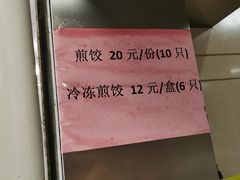 煎饺 20 元/份(10 只)
冷冻煎饺 12 元/盒(6 只)